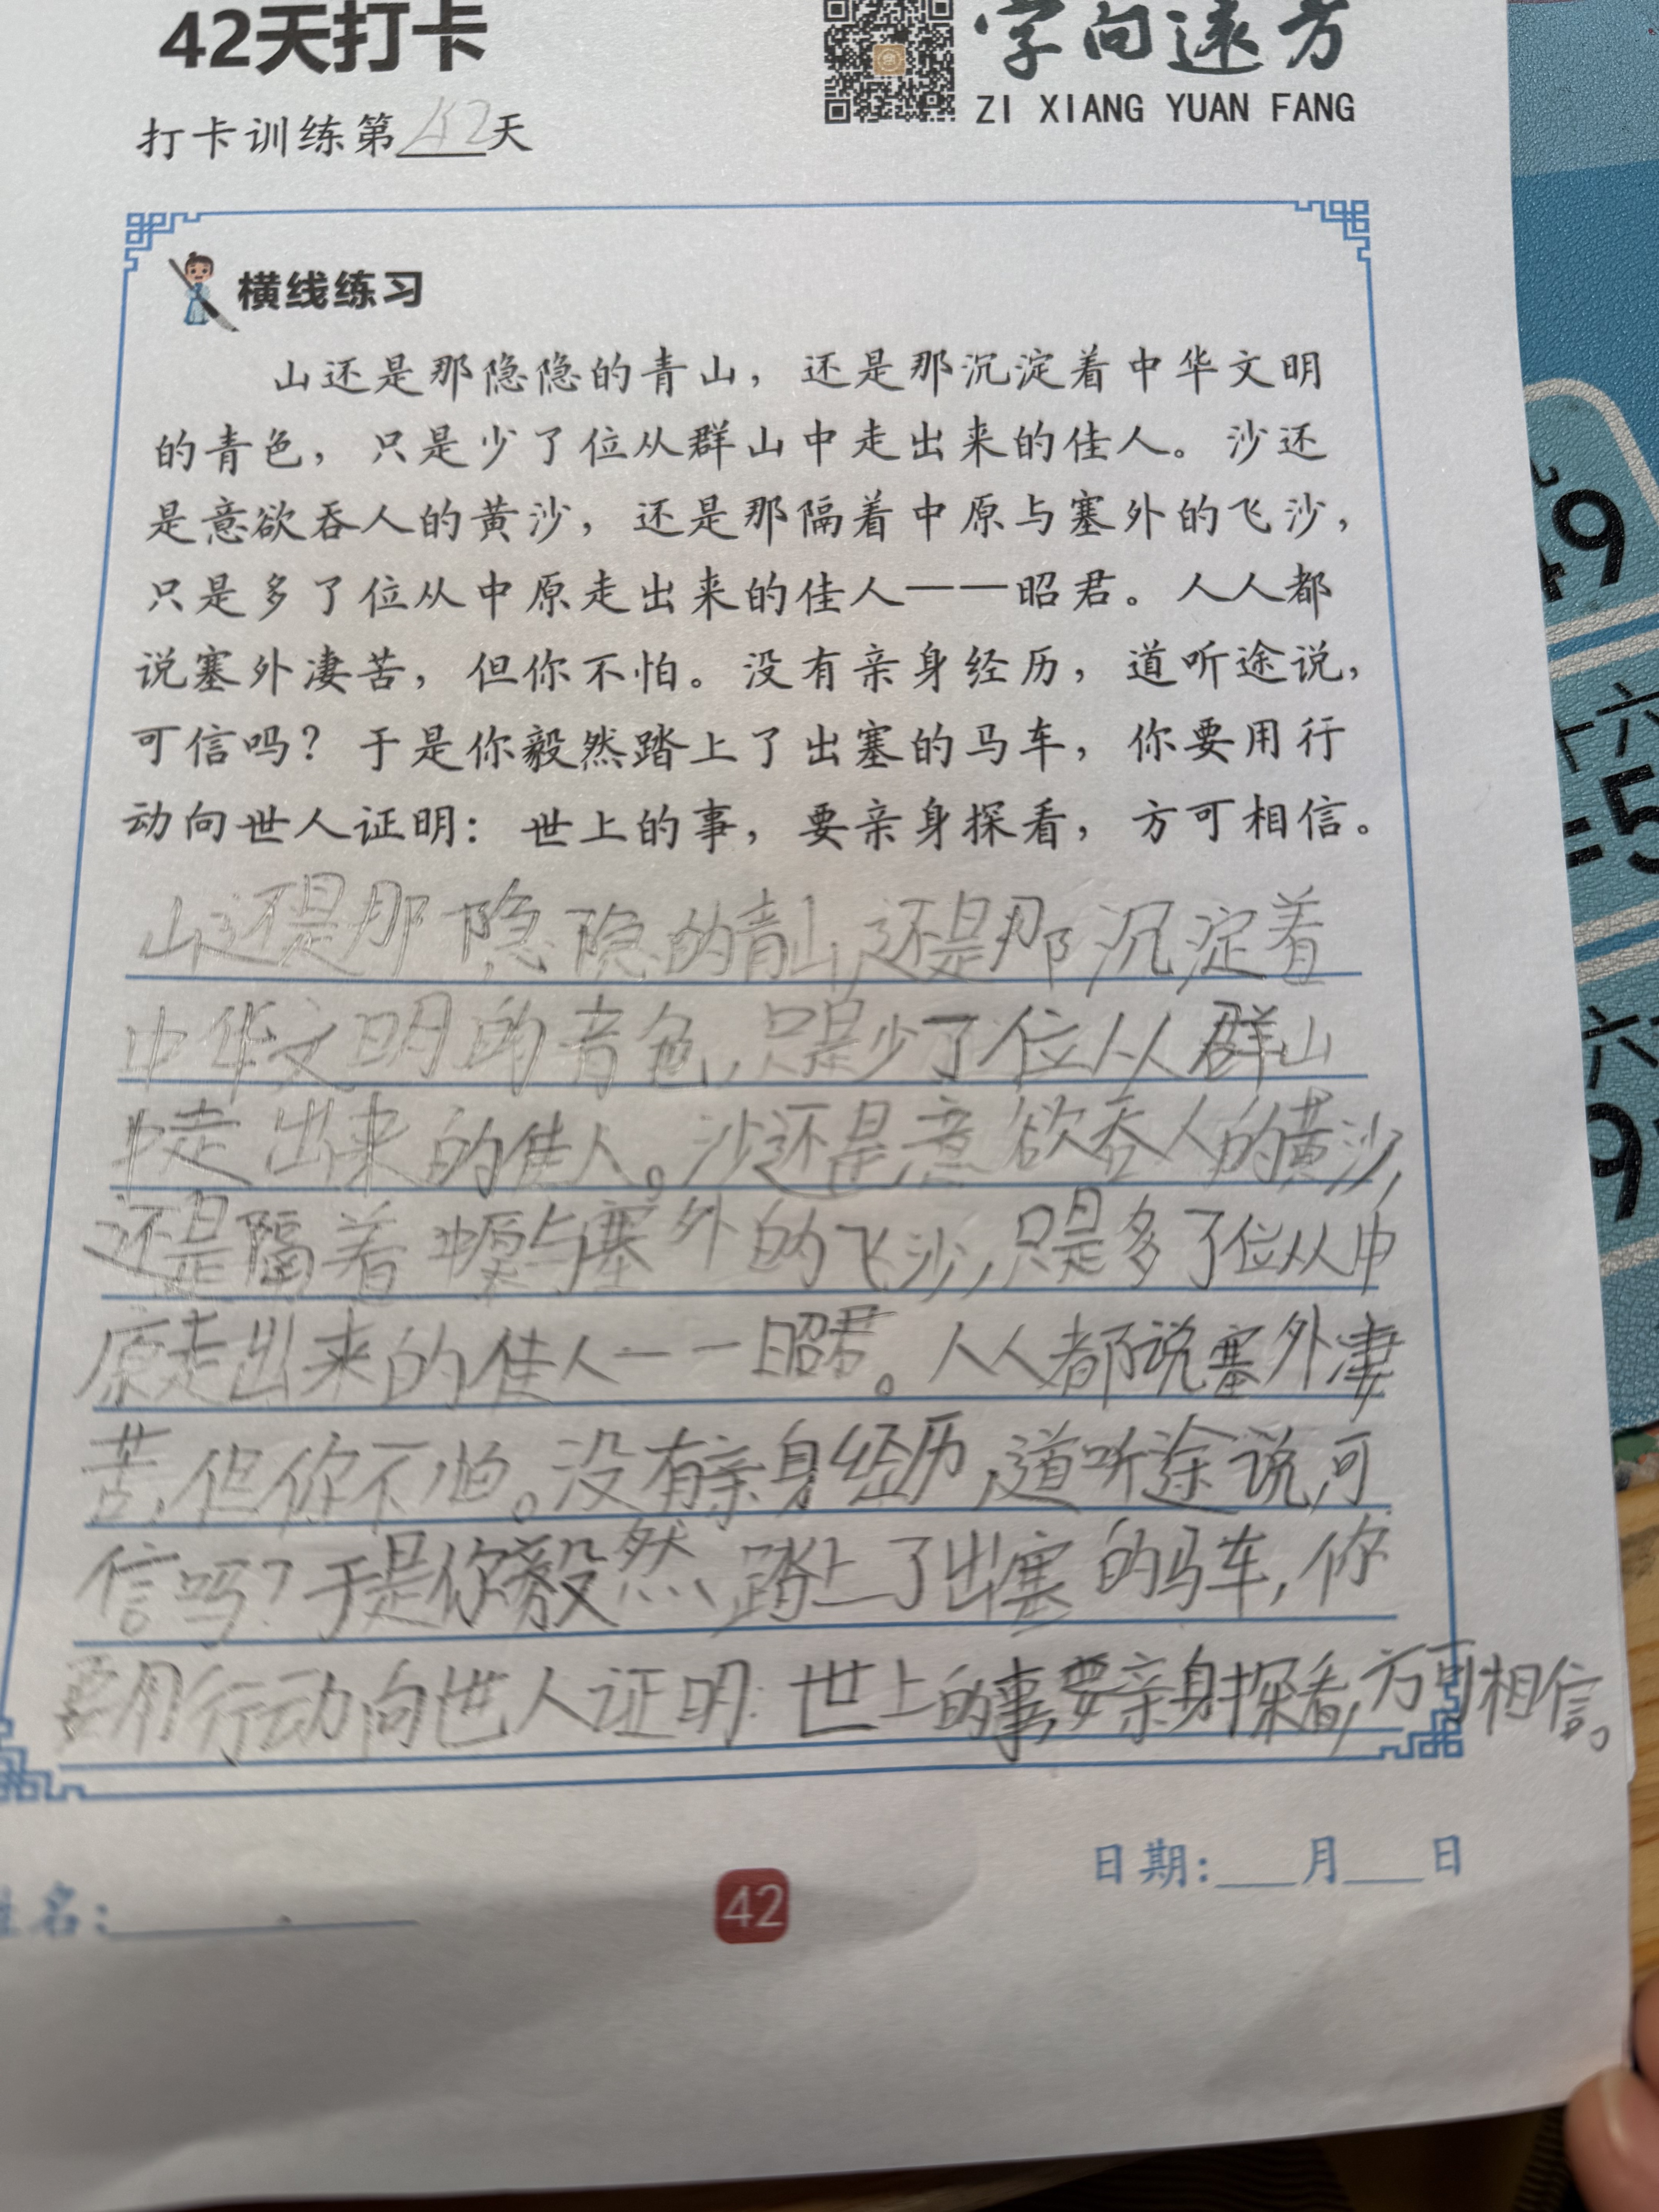 42天打卡
字向远方
ZI XIANG YUAN FANG
打卡训练第42天
横线练习
山还是那隐隐的青山，还是那沉淀着中华文明
的青色，只是少了位从群山中走出来的佳人。沙还
是意欲吞人的黄沙，还是那隔着中原与塞外的飞沙，
只是多了位从中原走出来的佳人——昭君。人人都
说塞外凄苦，但你不怕。没有亲身经历，道听途说，
可信吗？于是你毅然踏上了出塞的马车，你要用行
动向世人证明：世上的事，要亲身探看，方可相信。
山还是那隐隐的青山，还是那沉淀着
中华文明的青色，只是少了位从群山
中走出来的佳人。沙还是意欲吞人的黄沙，
还是隔着中原与塞外的飞沙，只是多了位从中
原走出来的佳人——昭君。人人都说塞外凄
苦，但你不怕。没有亲身经历，道听途说，可
信吗？于是你毅然踏上了出塞的马车，你
要用行动向世人证明：世上的事，要亲身探看，方可相信。
日期：___月___日
姓名：
42
49
十六
=5
六
9